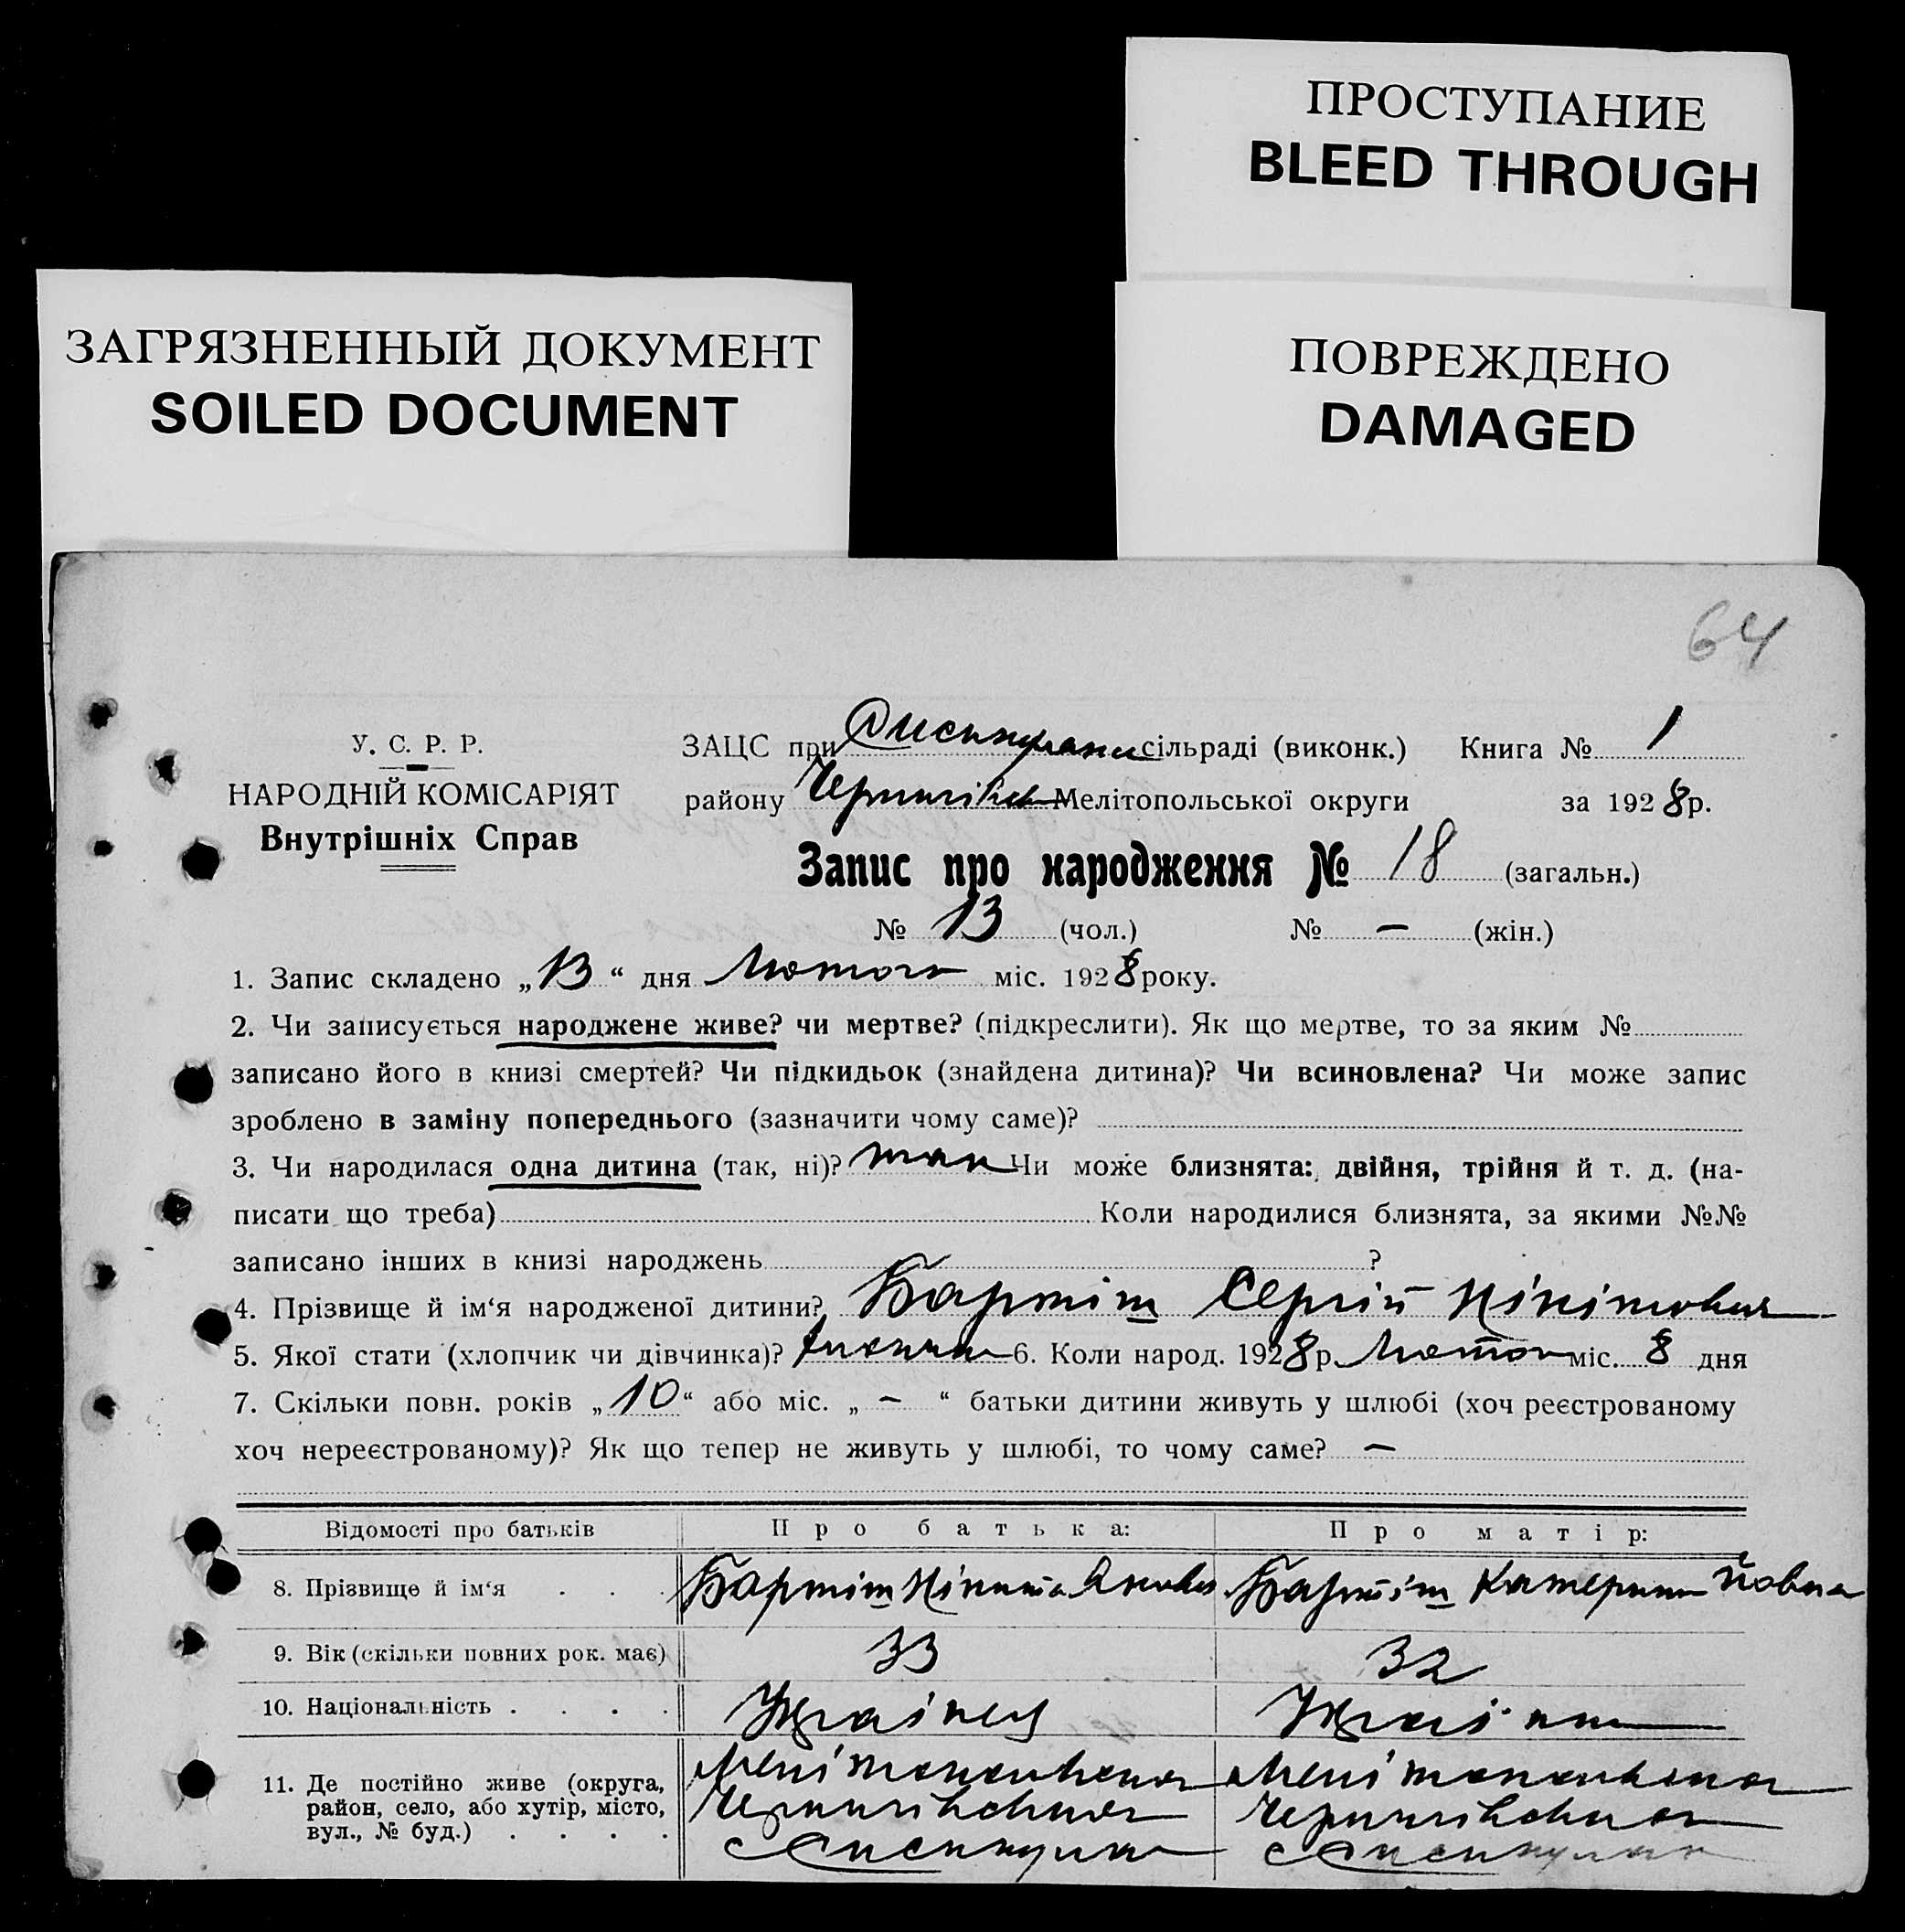 ПРОСТУПАНИЕ
BLEED THROUGH
ЗАГРЯЗНЕННЫЙ ДОКУМЕНТ
SOILED DOCUMENT
ПОВРЕЖДЕНО
DAMAGED
64
У. С. Р. Р.
НАРОДНІЙ КОМІСАРІЯТ
Внутрішніх Справ
ЗАЦС при сільраді (виконк.) Книга № 1
району Мелітопольської округи за 1928 р.
Запис про народження № 18 (загальн.)
№ 13 (чол.) № — (жін.)
1. Запис складено „13“ дня Лютого міс. 1928 року.
2. Чи записується народжене живе? чи мертве? (підкреслити). Як що мертве, то за яким №
записано його в книзі смертей? Чи підкидьок (знайдена дитина)? Чи всиновлена? Чи може запис
зроблено в заміну попереднього (зазначити чому саме)?
3. Чи народилася одна дитина (так, ні)? так Чи може близнята: двійня, трійня й т. д. (на-
писати що треба) Коли народилися близнята, за якими №№
записано інших в книзі народжень ?
4. Прізвище й ім‘я народженої дитини? Бартіш Сергій Нікітович
5. Якої стати (хлопчик чи дівчинка)? 6. Коли народ. 1928 р. Лютого міс. 8 дня
7. Скільки повн. років „10“ або міс. „ — “ батьки дитини живуть у шлюбі (хоч реєстрованому
хоч нереєстрованому)? Як що тепер не живуть у шлюбі, то чому саме? —
Відомості про батьків Про батька: Про матір:
8. Прізвище й ім‘я . . . Бартіш Нікита Бартіш Катерина
9. Вік (скільки повних рок. має) 33 32
10. Національність . . . . Українец Україн
11. Де постійно живе (округа,
район, село, або хутір, місто,
вул., № буд.) . . . .